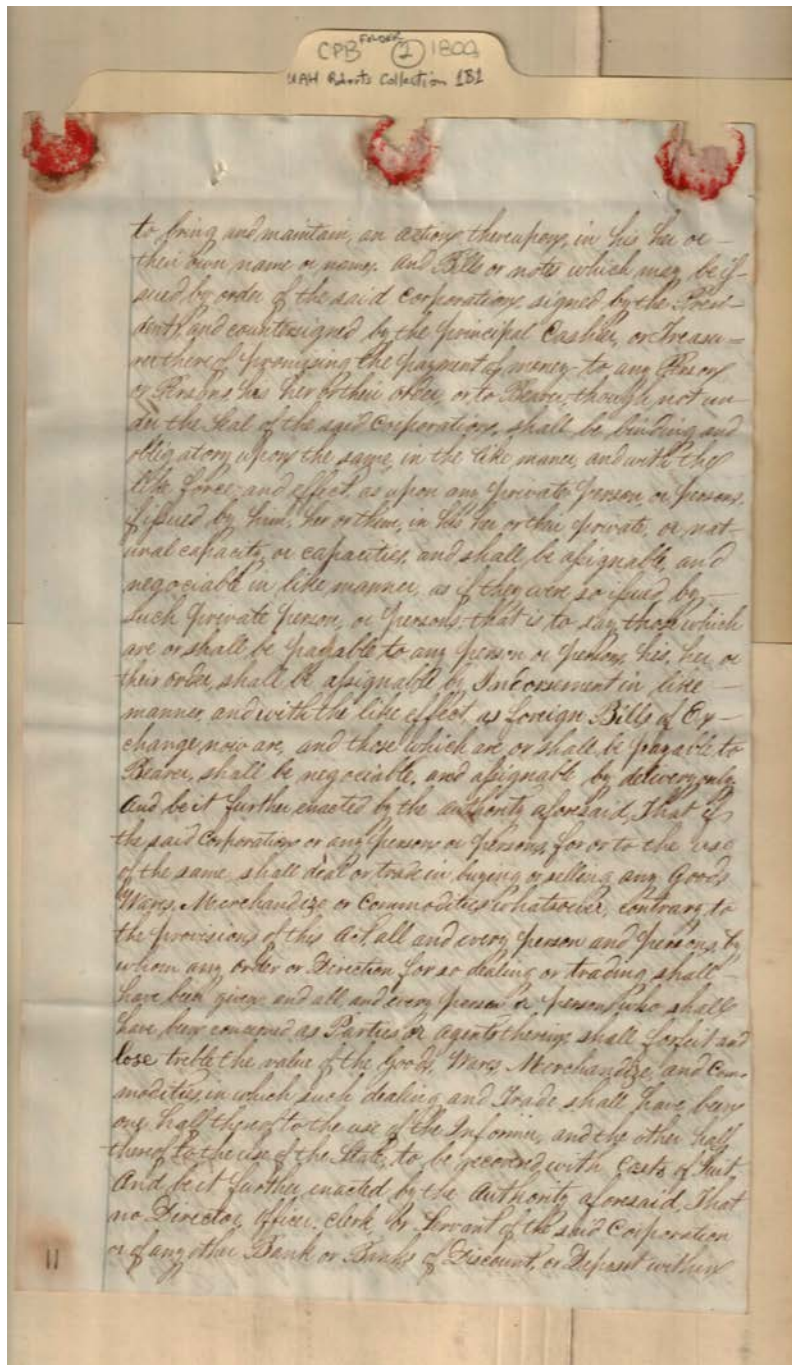 CPB FOLDER (2) 1800
UAH Roberts Collection 1B1
to bring and maintain, an action thereupon, in his her or —
their own name or names. And Bills or notes which may be is-
sued by order of the said Corporation, signed by the Presi-
dent, and countersigned by the principal Cashier, or Treasu=
rer thereof promising the payment of money to any Person
or Persons his her or their order, or to Bearer, though not un-
der the Seal of the said Corporation, shall be binding and
obligatory upon the same, in the like maner, and with the
like force, and effect, as upon any private person, or persons,
if issued by him, her or them, in his her or their private, or nat-
ural capacity, or capacities, and shall, be assignable, and
negociable in like manner, as if they were so issued by —
such private person, or persons — that is to say, those which
are or shall be payable to any person or persons, his, her, or
their order, shall be assignable by Indorsement in like —
manner, and with the like effect, as foreign Bills of Ex —
change, now are, and those which are, or shall be payable to
Bearer, shall be negociable, and assignable by delivery only
And be it further enacted by the authority aforesaid, That if
the said Corporation or any person or persons, for or to the use
of the same, shall deal or trade in buying or selling any Goods
Wares, Merchandize or Commodities whatsoever, contrary to
the provisions of this Act, all and every person and persons, by
whom any order or Direction for so dealing or trading, shall
have been given, and all, and every person or persons who shall
have been concerned as Parties or agents therein, shall forfeit and
lose treble the value of the Goods, Wares, Merchandize, and Com-
modities, in which such dealing and Trade shall have been,
one half thereof to the use of the Informer, and the other half
thereof to the use of the State, to be recovered with Costs of Suit.
And be it further, enacted by the Authority aforesaid, That
no Director, Officer, Clerk or Servant of the said Corporation
or of any other Bank or Banks of Discount, or Deposit within
11